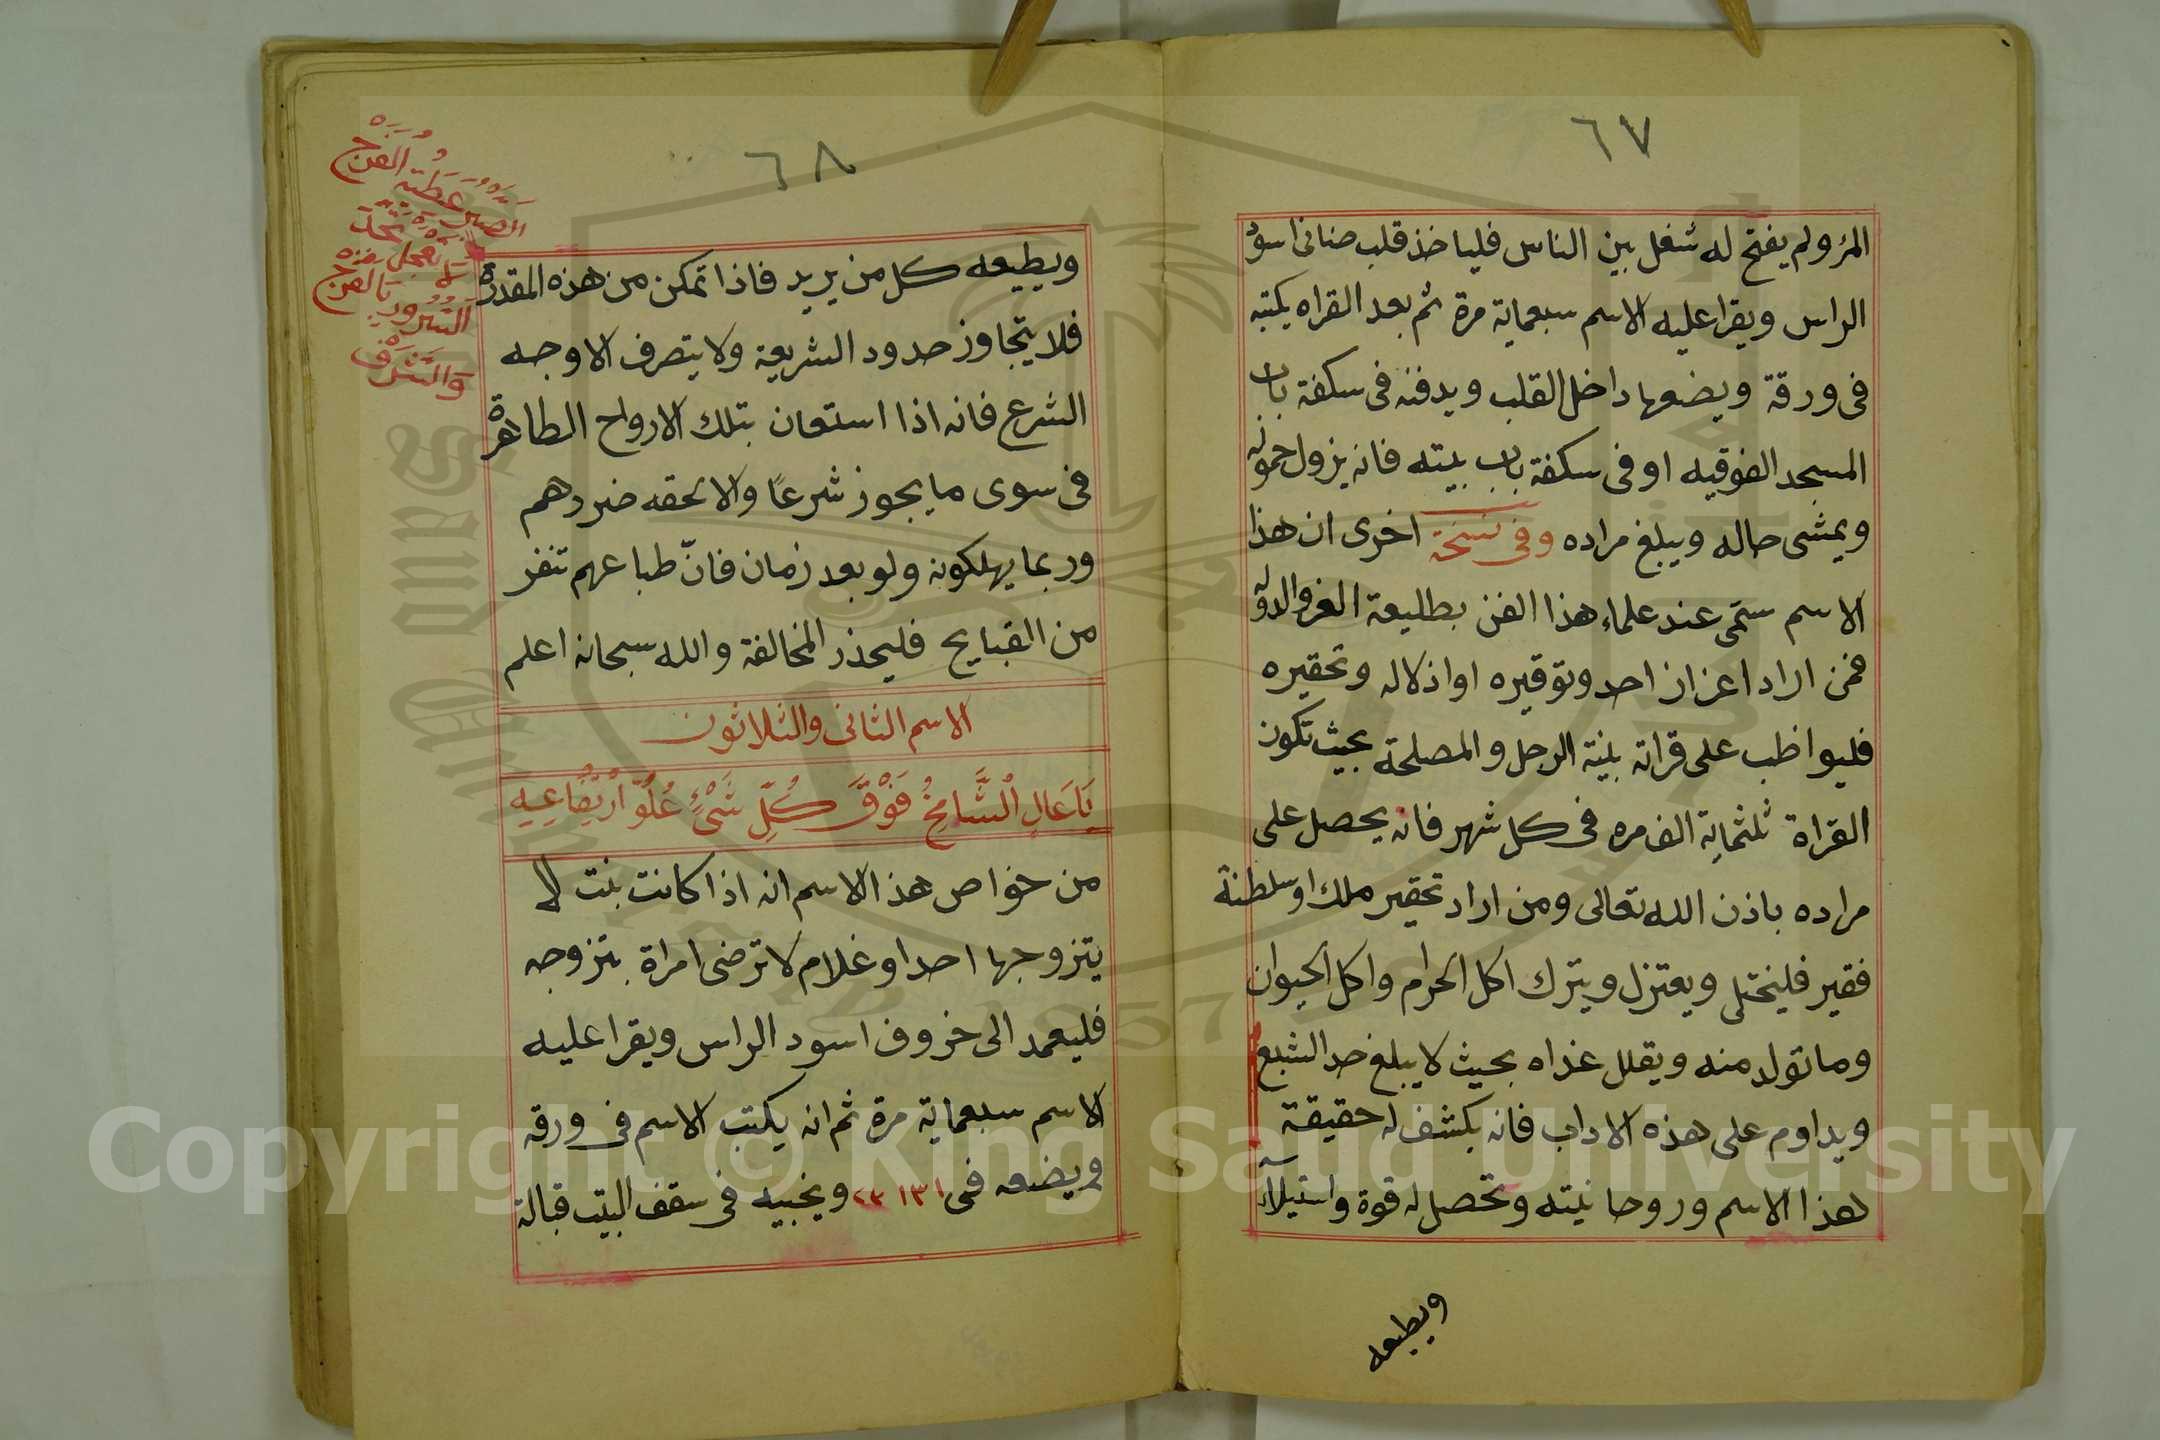 ٦٧
المرؤ ولم يفتح له شغل بين الناس فلياخذ قلب ضانى اسود
الراس ويقرا عليه الاسم سبعماية مرة ثم بعد القراه يكتبه
فى ورقة ويضعها داخل القلب ويدفنه فى سكفة باب
المسجد الفوقيه او فى سكفة باب بيته فانه يزول حموله
ويمشى حاله ويبلغ مراده وفى نسخة اخرى ان هذا
الاسم سمى عند علماء هذا الفن بطليعة العز والدوله
فمن اراد اعزاز احد وتوقيره او اذلاله وتحقيره
فليواظب على قراته بنية الرجل والمصلحة بحيث تكون
القراة ثلثماية الف مره فى كل شهر فانه يحصل على
مراده باذن الله تعالى ومن اراد تحقير ملك او سلطنة
فقير فليختلى ويعتزل ويترك اكل الحرام واكل الحيوان
وما تولد منه ويقلل غذاه بحيث لا يبلغ حد الشبع
ويداوم على هذه الاداب فانه يكشف له حقيقة
هذا الاسم وروحانيته وتحصل له قوة واستيلآء
ويطيعه
٦٨
ويطيعه كل من يريد فاذا تمكن من هذه المقدرة
فلا يتجاوز حدود الشريعة ولا يتصرف الا وجه
الشرع فانه اذا استعان بتلك الارواح الطاهرة
فى سوى ما يجوز شرعًا والا لحقه ضررهم
وربما يهلكونه ولو بعد زمان فانّ طباعهم تنفر
من القبايح فليحذر المخالفة والله سبحانه اعلم
الاسم الثانى والثلاثون
يَا عَالِ الْشَّامِخُ فَوْقَ كُلِّ شَىْءٍ عُلُوّ ارْتِفَاعِيِهِ
من خواص هذا الاسم انه اذا كانت بنت لا
يتزوجها احد او غلام لا ترضى امراة بتزوجه
فليعمد الى خروف اسود الراس ويقرا عليه
الاسم سبعماية مرة ثم انه يكتب الاسم فى ورقه
ويضعه فى ويخبيه فى سقف البيت قبالة
الفرج
الصبر عطية
بالفرج
السرور
والشرف